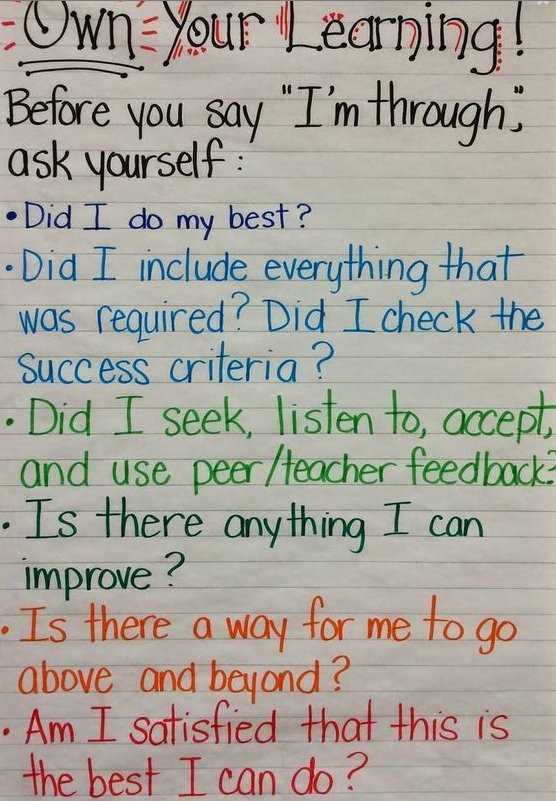 Own Your Learning!
Before you say "I'm through",
ask yourself:
• Did I do my best?
• Did I include everything that
was required? Did I check the
success criteria?
• Did I seek, listen to, accept,
and use peer/teacher feedback?
• Is there anything I can
improve?
• Is there a way for me to go
above and beyond?
• Am I satisfied that this is
the best I can do?